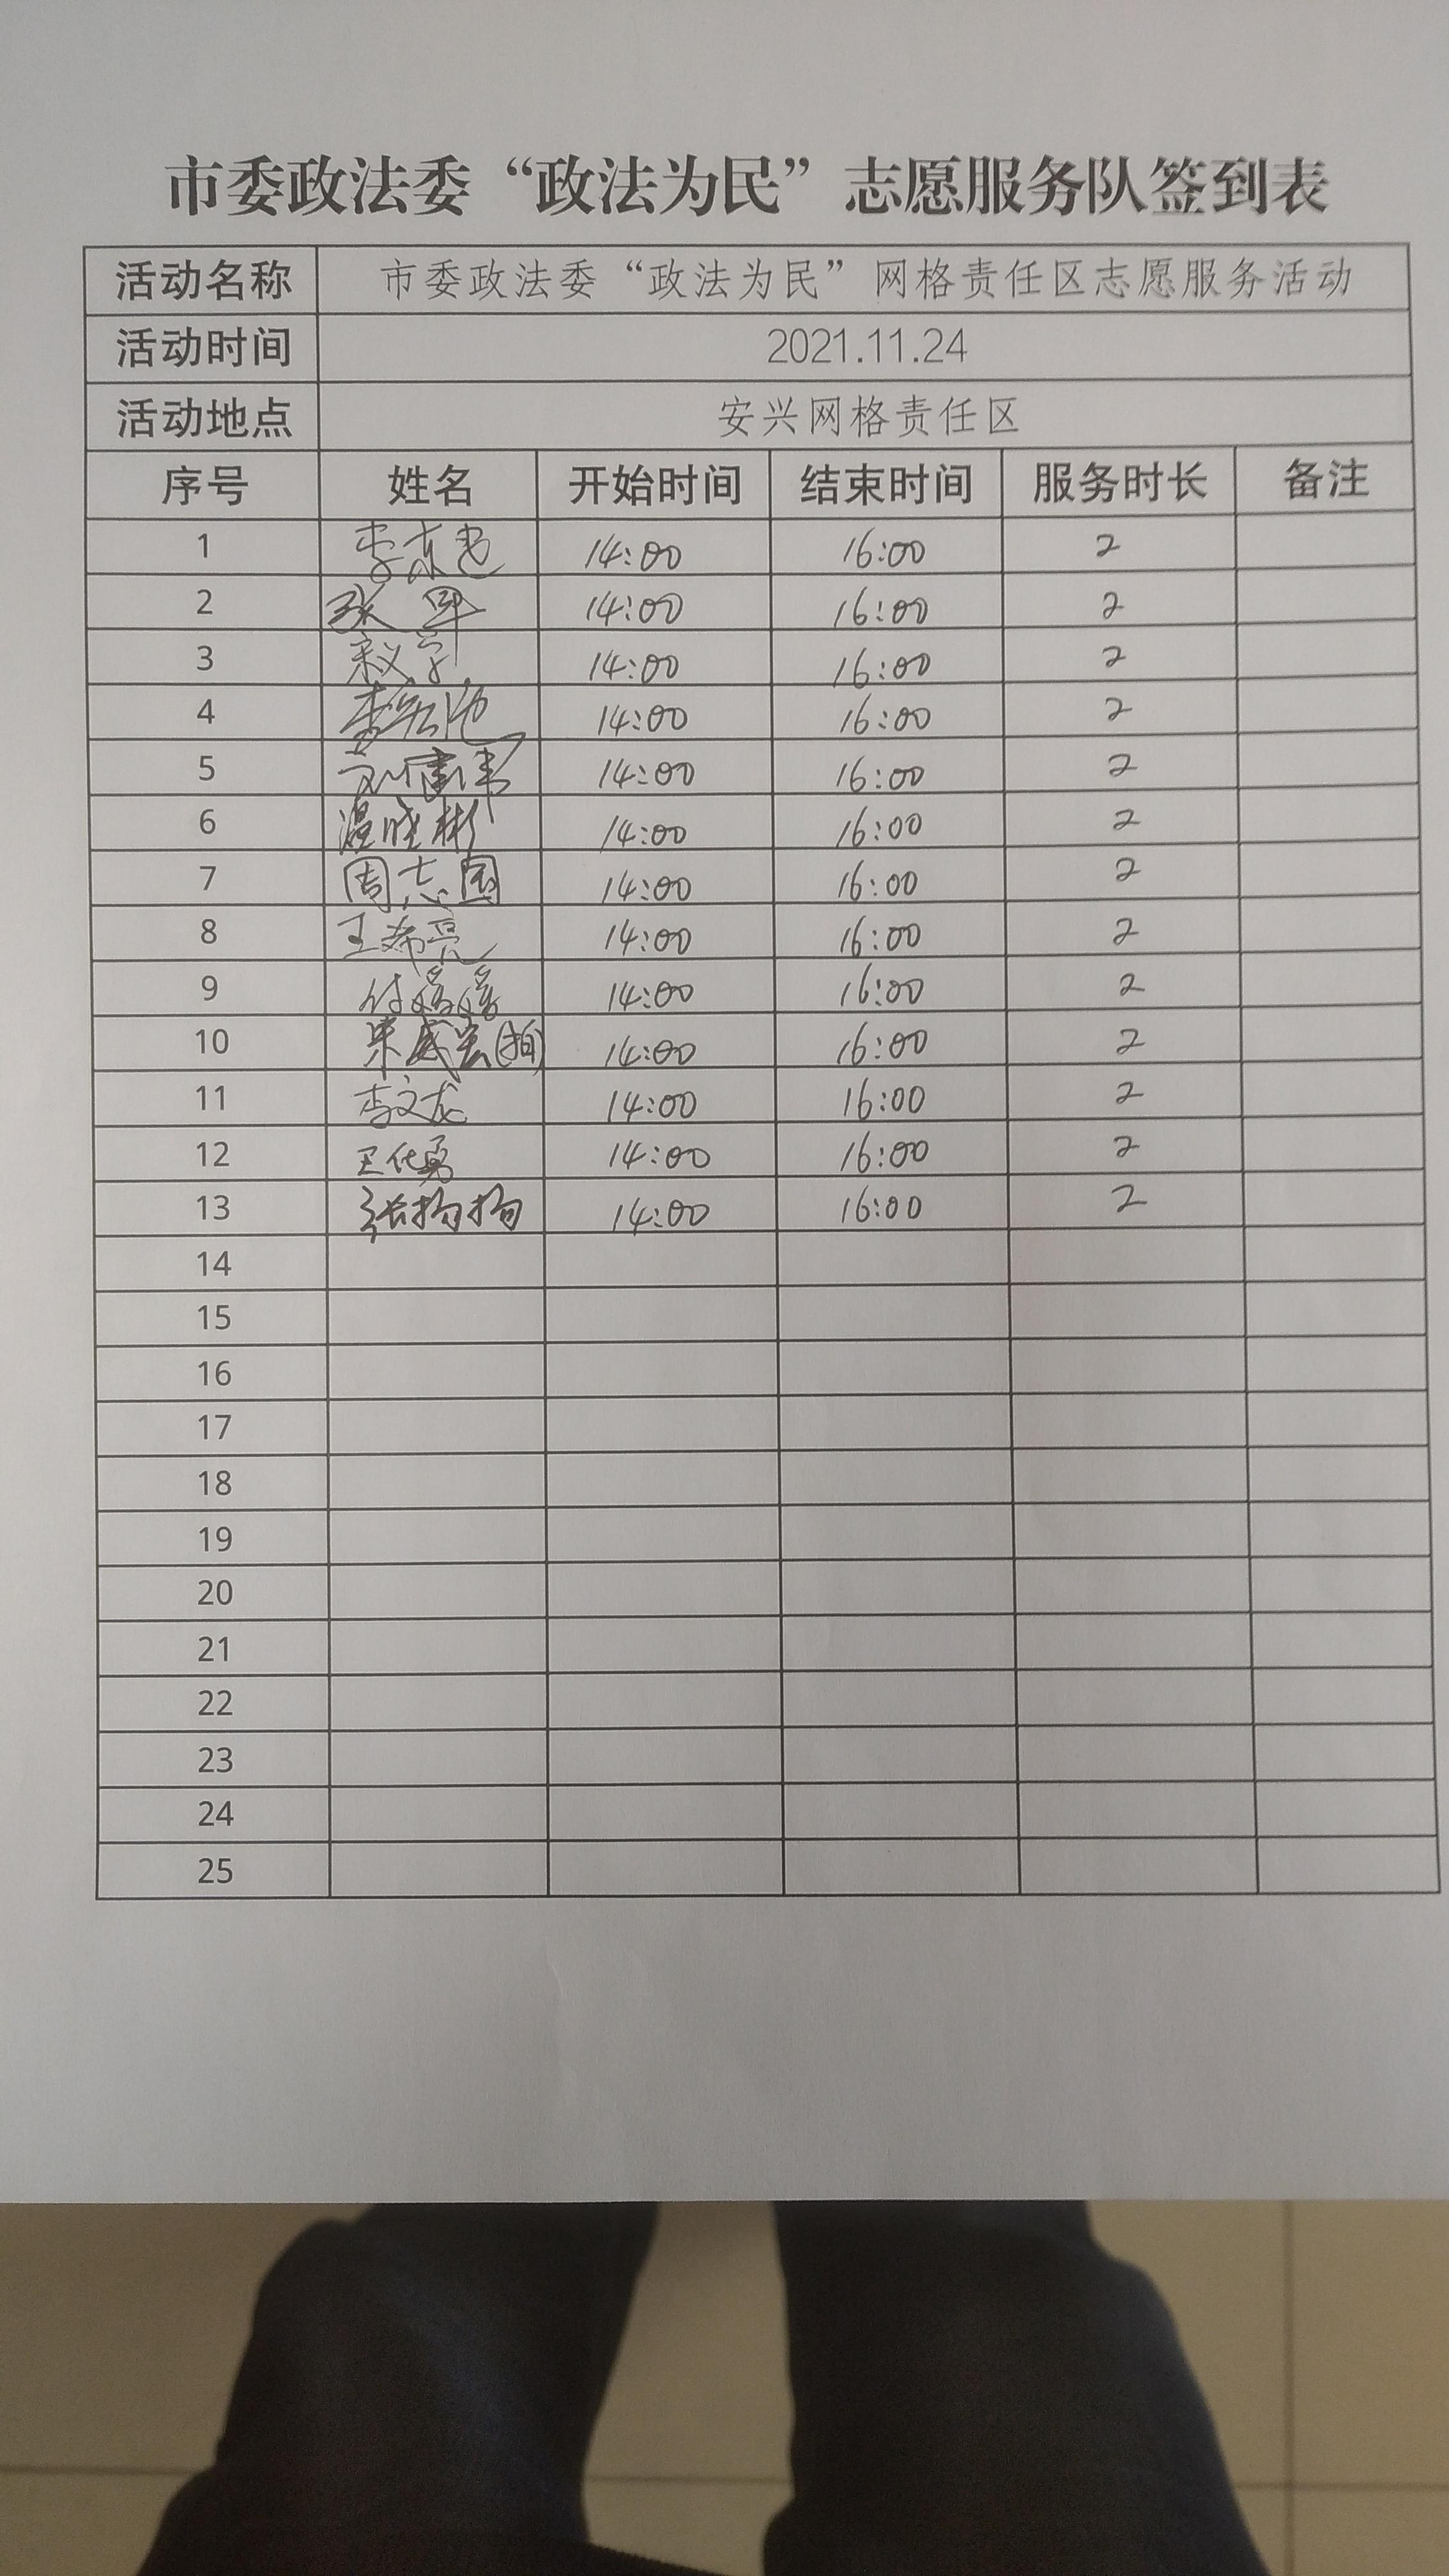 市委政法委“政法为民”志愿服务队签到表
活动名称 市委政法委“政法为民”网格责任区志愿服务活动
活动时间 2021.11.24
活动地点 安兴网格责任区
序号 姓名 开始时间 结束时间 服务时长 备注
1 14:00 16:00 2
2 张军 14:00 16:00 2
3 14:00 16:00 2
4 14:00 16:00 2
5 刘伟 14:00 16:00 2
6 温晓彬 14:00 16:00 2
7 周志国 14:00 16:00 2
8 王希亮 14:00 16:00 2
9 付媛媛 14:00 16:00 2
10 14:00 16:00 2
11 李文龙 14:00 16:00 2
12 王代勇 14:00 16:00 2
13 张扬扬 14:00 16:00 2
14
15
16
17
18
19
20
21
22
23
24
25